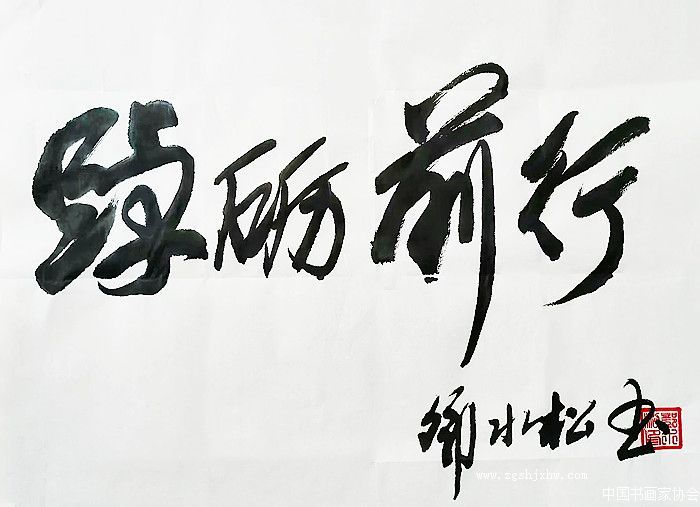 踔砺前行
水松书
www.zgshjxhw.com
中国书画家协会